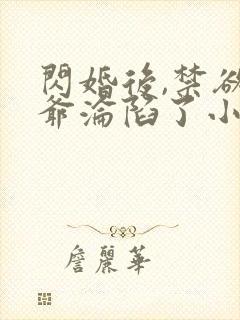 閃婚後,禁欲
爺淪陷了小
詹麗華